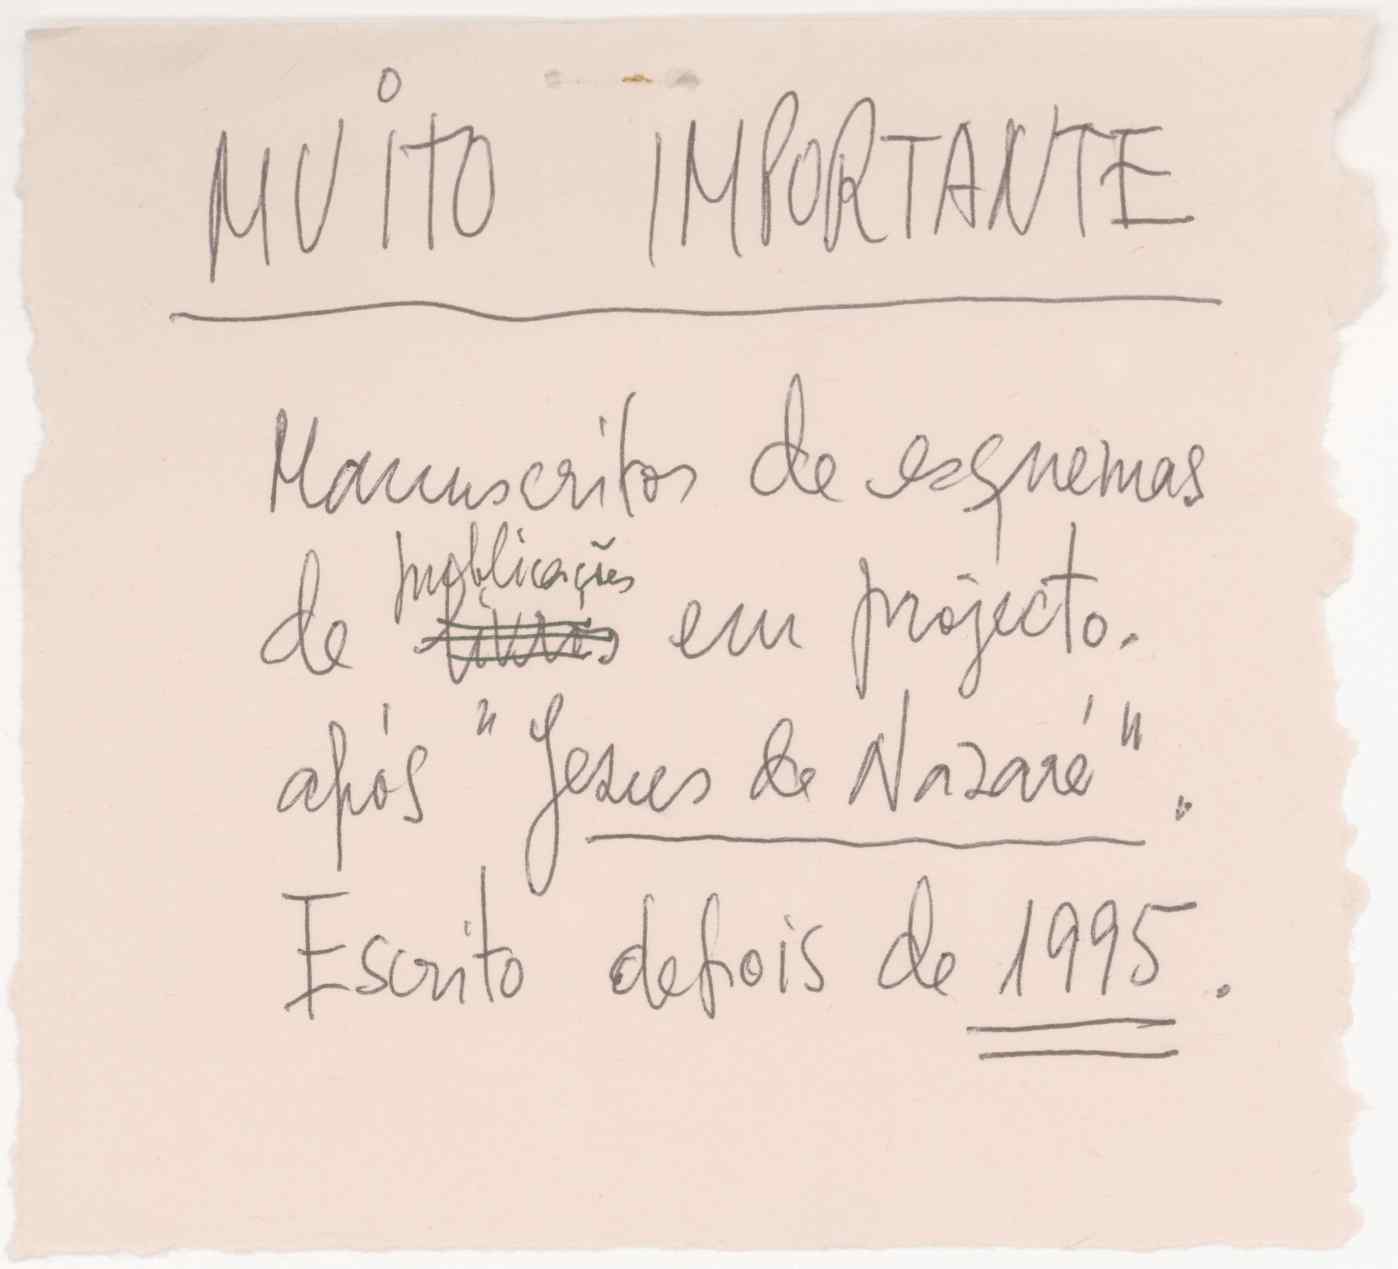 MUiTO IMPORTANTE
Manuscritos de esquemas
publicações
de livros em projecto.
após "Jesus de Nazaré".
Escrito depois de 1995.